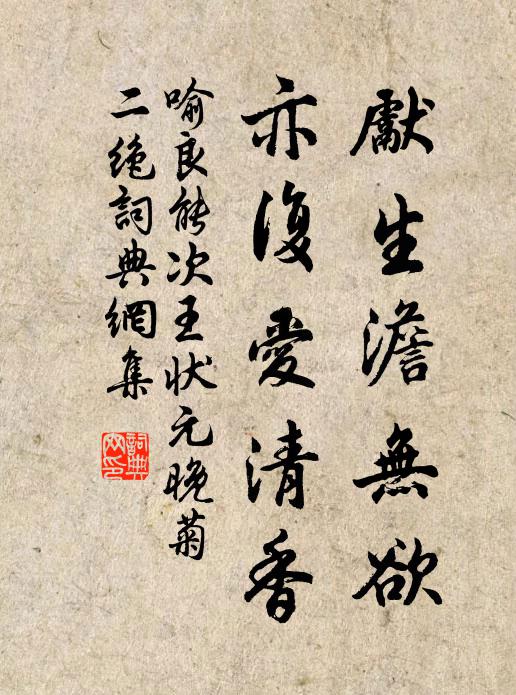 獻生澹無欲
亦復愛清香
喻良能次王狀元晚菊
二絕詞典網集
詞典网印